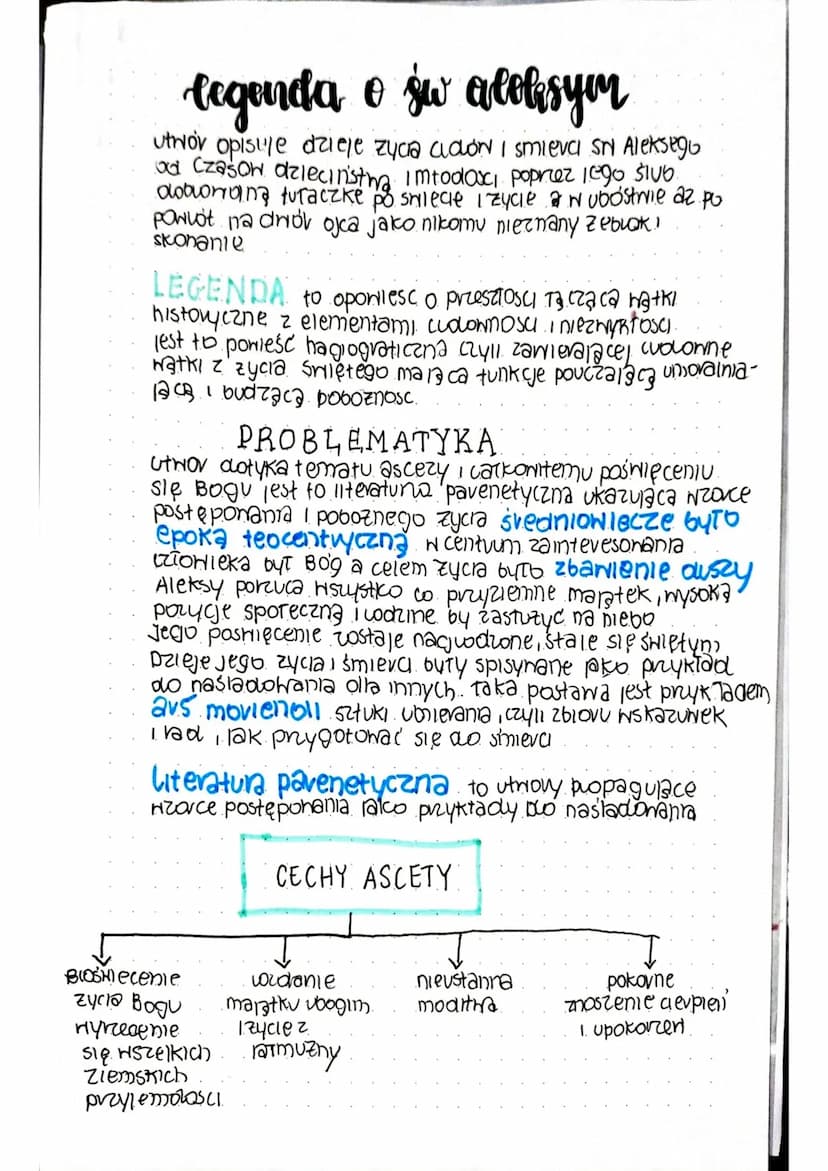 legenda o św aleksym
utwór opisuje dzieje życia cudów i śmierci św Aleksego
od czasów dzieciństwa i młodości poprzez jego ślub
dobrowolną tułaczkę po świecie i życie w ubóstwie aż po
powrót na dwór ojca jako nikomu nieznany żebrak i
skonanie
LEGENDA to opowieść o przeszłości łącząca wątki
historyczne z elementami cudowności i niezwykłości
jest to powieść hagiograficzna czyli zawierającej cudowne
wątki z życia świętego mająca funkcje pouczającą umoralnia-
jącą i budzącą pobożność.
PROBLEMATYKA
utwór dotyka tematu ascezy i całkowitemu poświęceniu
się Bogu jest to literatura parenetyczna ukazująca wzorce
postępowania i pobożnego życia średniowiecze było
epoką teocentryczną w centrum zainteresowania
człowieka był Bóg a celem życia było zbawienie duszy
Aleksy porzuca wszystko co przyziemne majątek, wysoką
pozycje społeczną i rodzine by zasłużyć na niebo
Jego poświęcenie zostaje nagrodzone, staje się świętym
Dzieje jego życia i śmierci były spisywane jako przykład
do naśladowania dla innych. Taka postawa jest przykładem
ars moriendi sztuki umierania, czyli zbioru wskazówek
i rad, jak przygotować się do śmierci
literatura parenetyczna to utwory propagujące
wzorce postępowania jako przykłady do naśladowania
CECHY ASCETY
poświęcenie
życia Bogu
wyrzeczenie
się wszelkich
ziemskich
przyjemności
rozdanie
majątku ubogim
i życie z
jałmużny
nieustanna
modlitwa
pokorne
znoszenie cierpień
i upokorzeń